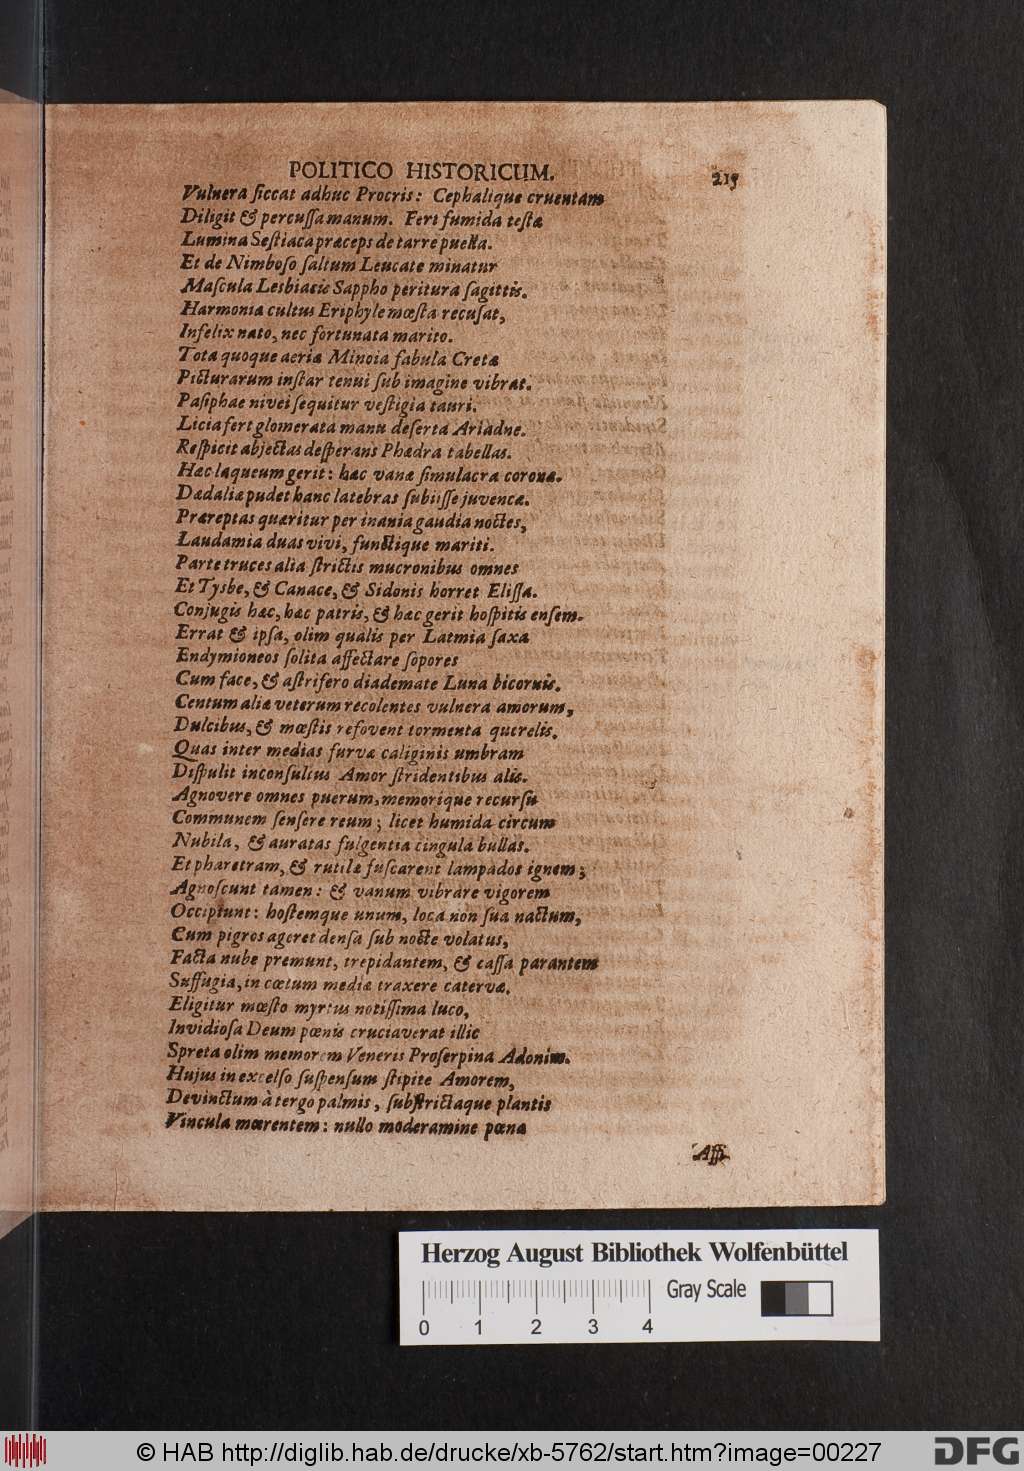 POLITICO HISTORICUM. 219
Vulnera siccat adhuc Procris: Cephalique cruentam
Diligit & percussa manum. Fert fumida testa
Lumina Sestiaca præceps de tarre puella.
Et de Nimboso saltum Leucate minatur
Mascula Lesbiacis Sappho peritura sagittis.
Harmonia cultus Eriphyle mœsta recusat,
Infelix nato, nec fortunata marito.
Tota quoque aeria Minoia fabula Cretæ
Picturarum instar tenui sub imagine vibrat.
Pasiphae nivei sequitur vestigia tauri.
Licia fert glomerata manu deserta Ariadne.
Respicit abjectas desperans Phædra tabellas.
Hæc laqueum gerit: hæc vanæ simulacra coronæ.
Dædaliæ pudet hanc latebras subiisse juvencæ.
Præreptas quæritur per inania gaudia noctes,
Laudamia duas vivi, functique mariti.
Parte truces alia strictis mucronibus omnes
Et Tysbe, & Canace, & Sidonis horret Elissa.
Conjugis hæc, hæc patris, & hæc gerit hospitis ensem.
Errat & ipsa, olim qualis per Latmia saxa
Endymioneos solita affectare sopores
Cum face, & astrifero diademate Luna bicornis.
Centum aliæ veterum recolentes vulnera amorum,
Dulcibus, & mœstis refovent tormenta querelis.
Quas inter medias furvæ caliginis umbram
Dispulit inconsultus Amor stridentibus alis.
Agnovere omnes puerum, memorique recursu
Communem sensere reum; licet humida circum
Nubila, & auratas fulgentia cingula bullas.
Et pharetram, & rutilæ fuscarent lampados ignem;
Agnoscunt tamen: & vanum vibrare vigorem
Occipiunt: hostemque unum, loca non sua nactum,
Cum pigros ageret densa sub nocte volatus,
Facta nube premunt, trepidantem, & cassa parantem
Suffugia, in cœtum mediæ traxere catervæ.
Eligitur mœsto myrtus notissima luco,
Invidiosa Deum pœnis cruciaverat illic
Spreta olim memorem Veneris Proserpina Adonim.
Hujus in excelso suspensum stipite Amorem,
Devinctum à tergo palmis, substrictaque plantis
Vincula mœrentem: nullo moderamine pœnæ
Affi-
Herzog August Bibliothek Wolfenbüttel
Gray Scale
0 1 2 3 4
© HAB http://diglib.hab.de/drucke/xb-5762/start.htm?image=00227
DFG